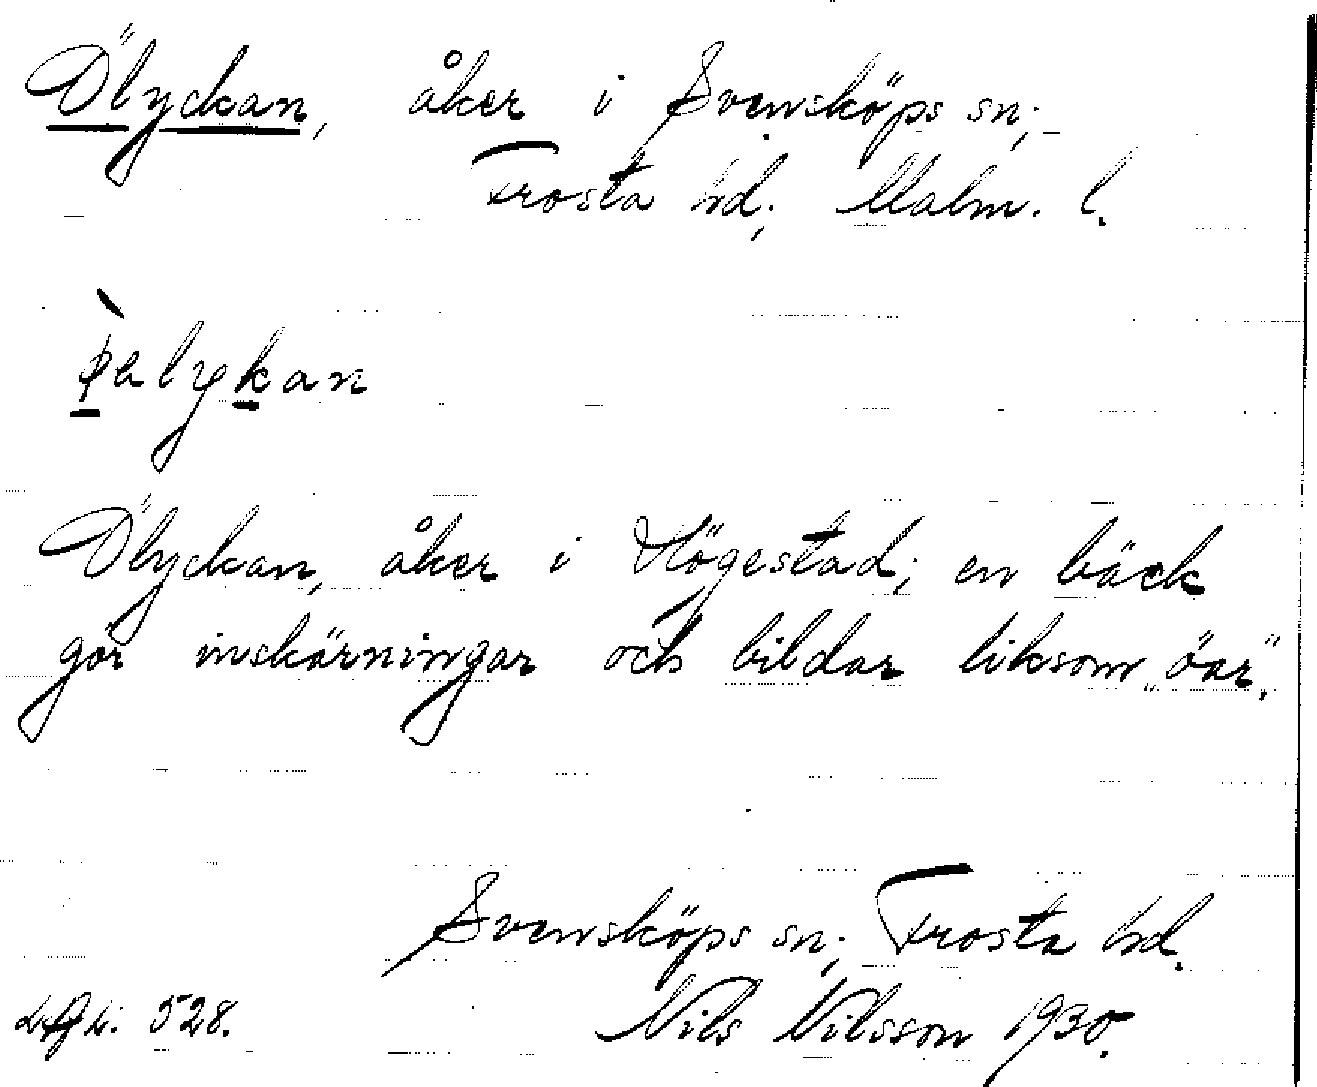 Ölyckan, åker i Svensköps sn;
Frosta hd; Malm. l.
Ölyckan, åker i Högestad; en bäck
gör inskärningar och bildar liksom „öar”.
Svensköps sn; Frosta hd.
528. Nils Nilsson 1930.